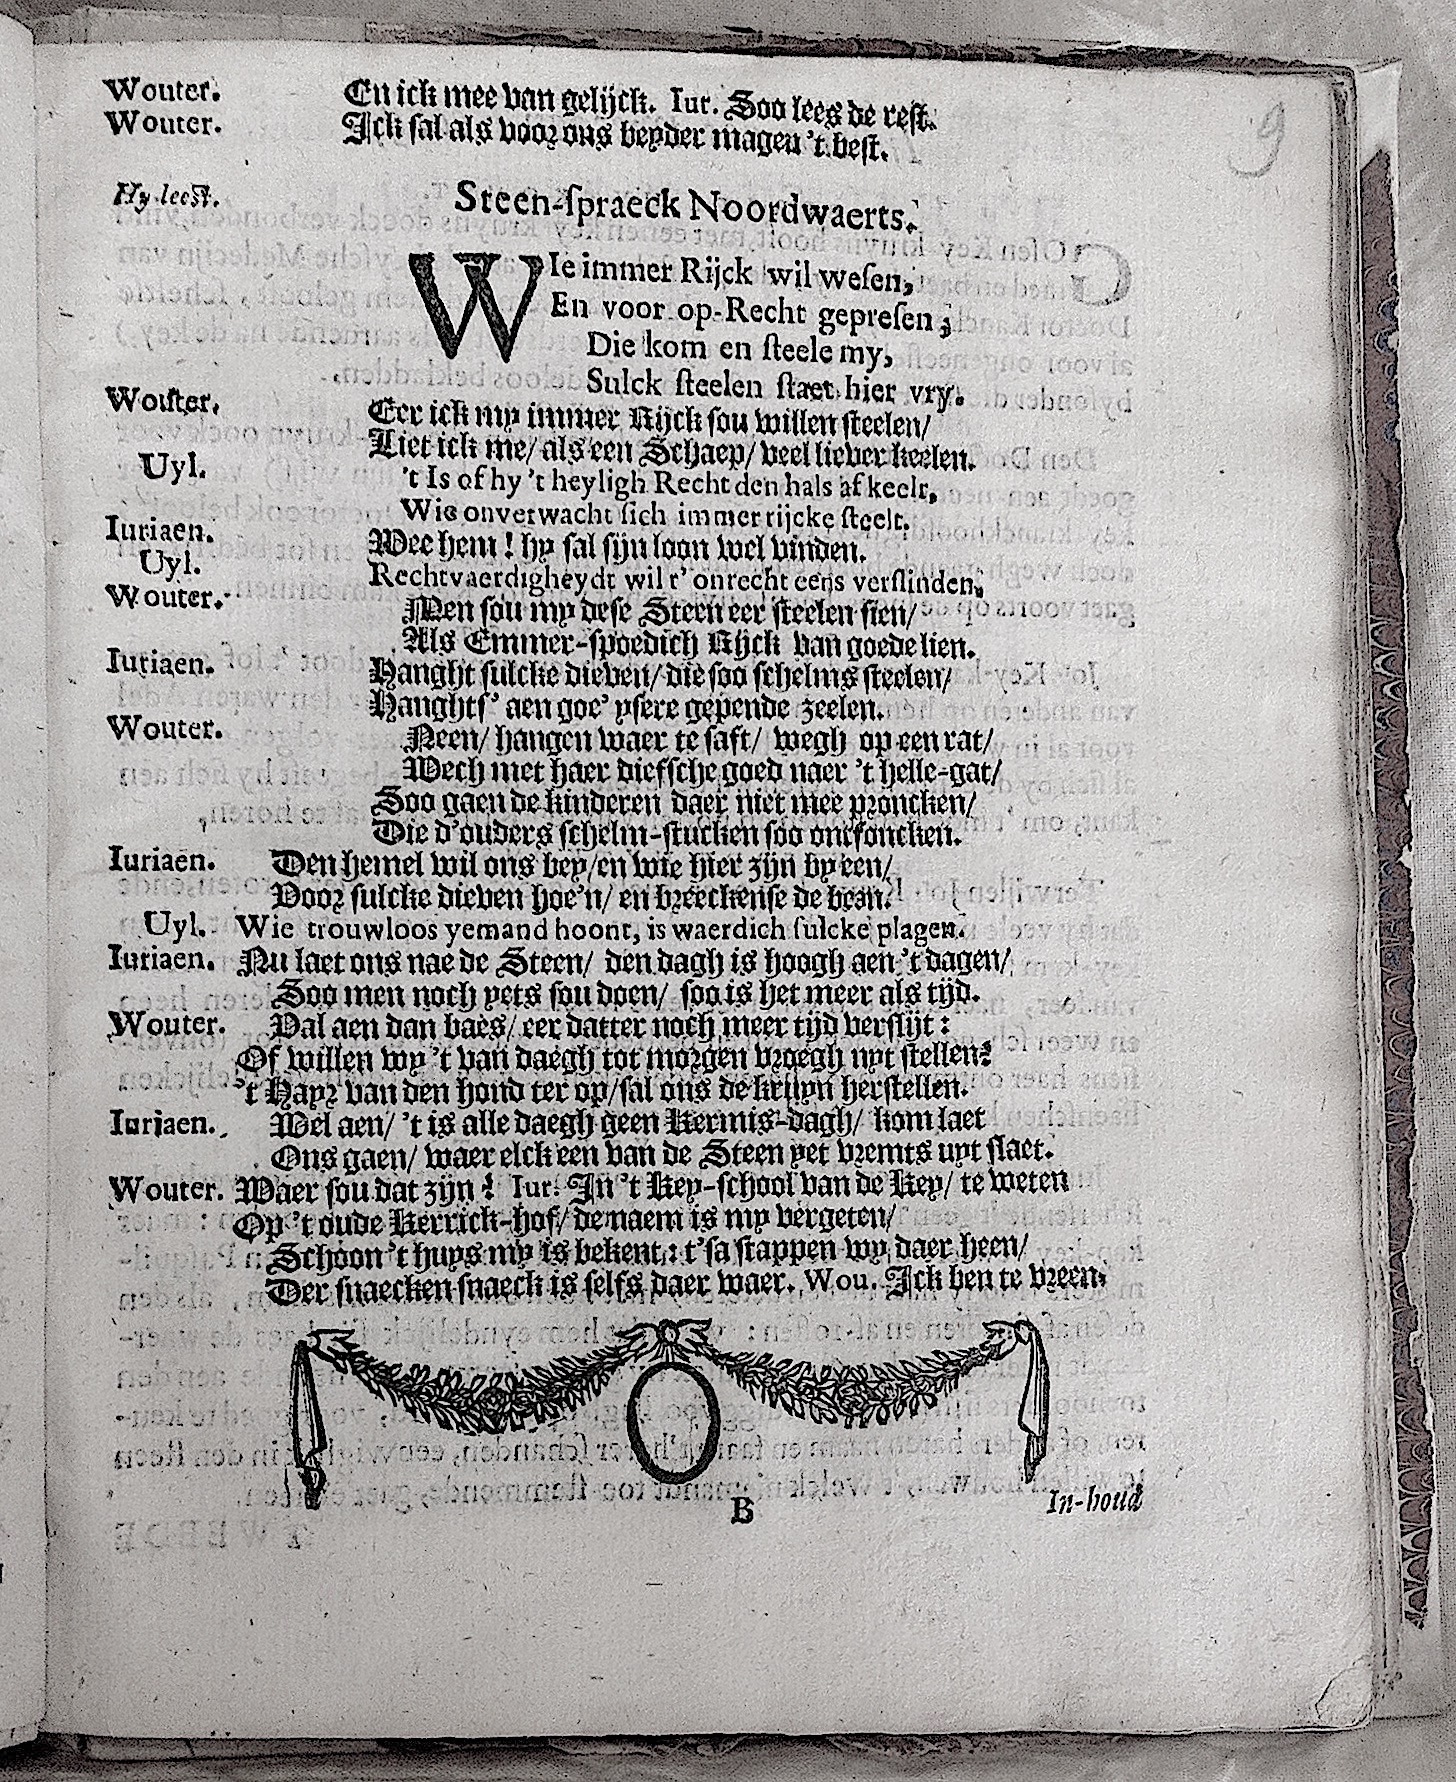 9
Wouter. En ick mee van gelijck. Iur. Soo lees de rest.
Wouter. Ick sal als voor ons beyder magen 't best.
Hy leest. Steen-spraeck Noordwaerts.
WIe immer Rijck wil wesen,
En voor op-Recht gepresen;
Die kom en steele my,
Sulck steelen staet hier vry.
Wouter. Eer ick my immer Rijck sou willen steelen/
Liet ick me/ als een Schaep/ veel liever keelen.
Uyl. 't Is of hy 't heyligh Recht den hals af keelt,
Wie onverwacht sich immer rijcke steelt.
Iuriaen. Wee hem! hy sal sijn loon wel vinden.
Uyl. Rechtvaerdigheydt wil t' onrecht eens verslinden.
Wouter. Men sou my dese Steen eer steelen sien/
Als Emmer-spoedich Rijck van goede lien.
Iuriaen. Hanght sulcke dieven/ die soo schelms steelen/
Hanghts' aen goe' ysere gepende zeelen.
Wouter. Neen/ hangen waer te saft/ wegh op een rat/
Wech met haer diefsche goed naer 't helle-gat/
Soo gaen de kinderen daer niet mee proncken/
Die d'ouders schelm-stucken soo ontfoncken.
Iuriaen. Den hemel wil ons bey/en wie hier zijn by een/
Voor sulcke dieven hoe'n/ en breeckense de bean.
Uyl. Wie trouwloos yemand hoont, is waerdich sulcke plagen.
Iuriaen. Nu laet ons nae de Steen/ den dagh is hoogh aen 't dagen/
Soo men noch yets sou doen/ soo is het meer als tijd.
Wouter. Val aen dan baes/ eer datter noch meer tijd verslijt:
Of willen wy 't van daegh tot morgen vroegh uyt stellen?
't Hayr van den hond ter op/sal ons de kruyn herstellen.
Iuriaen. Wel aen/ 't is alle daegh geen Kermis-dagh/ kom laet
Ons gaen/ waer elck een van de Steen yet vremts uyt slaet.
Wouter. Waer sou dat zijn? Iur. In 't Key-school van de Key/ te weten
Op 't oude Kerrick-hof/ de naem is my vergeten/
Schoon 't huys my is bekent: t'sa stappen wy daer heen/
Der snaecken snaeck is selfs daer waer. Wou. Ick ben te vreen.
B
In-houd